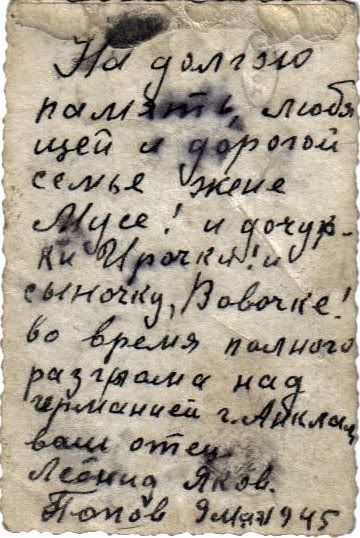 На долгою
память, любя
щей и дорогой
семье жене
Мусе! и дочур-
ки Ирочки! и
сыночку, Вовочке!
во время полного
разгрома над
германией г. Анклам,
ваш отец
Леонид Яков.
Попов 9 мая 1945